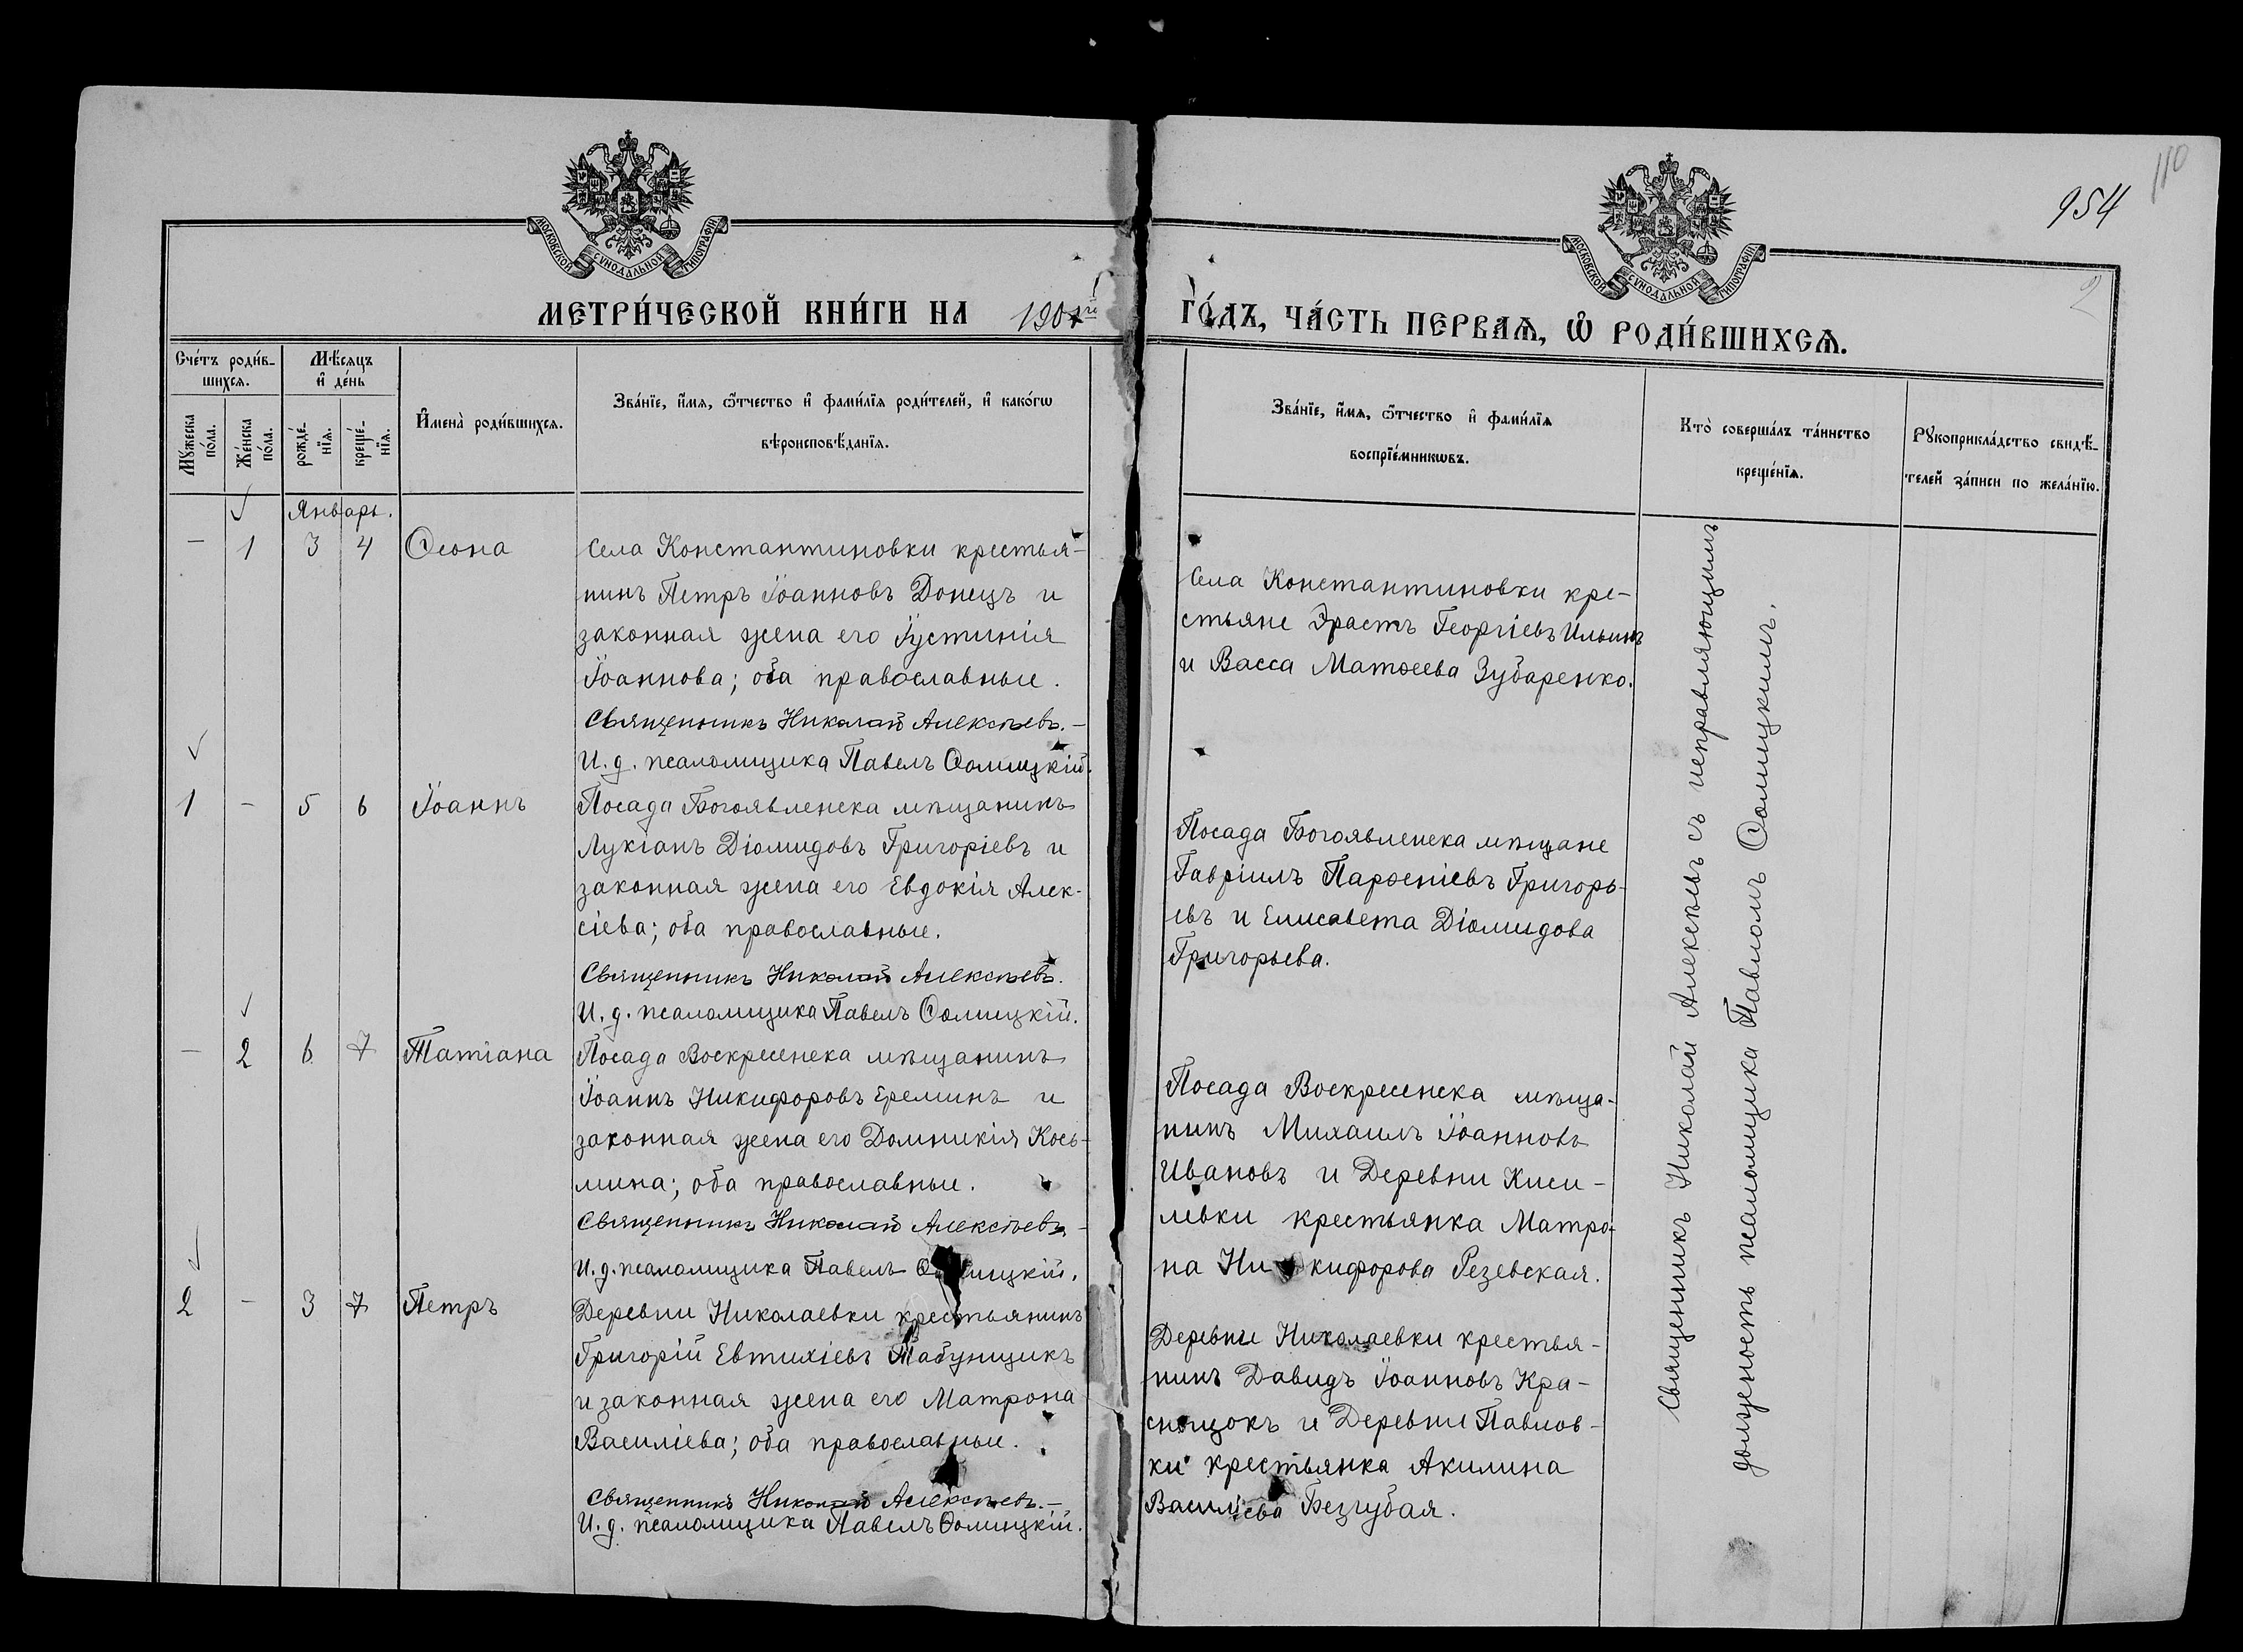 110
954
2
МОСКОВСКОЙ СУНОДАЛЬНОЙ ТИПОГРАФІИ.
МОСКОВСКОЙ СУНОДАЛЬНОЙ ТИПОГРАФІИ.
МЕТРИ́ЧЕСКОЙ КНИ́ГИ НА 1901го ГО́ДЪ, ЧА́СТЬ ПЕРВАѦ, Ѡ҆ РОДИ́ВШИХСѦ.
Сче́тъ роди́в-
шихсѧ.
Мѣ́сѧцъ
и҆ де́нь
Мꙋ́жеска
по́ла.
Же́нска
по́ла.
рожде́-
нїѧ.
креще́-
нїѧ.
И҆мена̀ роди́вшихсѧ.
Зва́нїе, и҆́мѧ, ѻ҆́тчество и҆ фами́лїѧ роди́телей, и҆ како́гѡ
вѣроисповѣ́данїѧ.
Зва́нїе, и҆́мѧ, ѻ҆́тчество и҆ фами́лїѧ
воспрїе́мникѡвъ.
Кто̀ соверша́лъ та́инство
креще́нїѧ.
Рꙋкоприкла́дство свидѣ́-
телей за́писи по жела́нїю.
Январь.
— 1 3 4 Ѳеона
Села Константиновки крестья-
нинъ Петръ Іоанновъ Донецъ и
законная жена его Іустинія
Іоаннова; оба православные.
Священникъ Николай Алексѣевъ.—
И. д. псаломщика Павелъ Ѳомицкій.
Села Константиновки кре-
стьяне Эрастъ Георгіевъ Ильинъ
и Васса Матѳеева Зубаренко.
1 — 5 6 Іоаннъ
Посада Богоявленска мѣщанинъ
Лукіанъ Діомидовъ Григоріевъ и
законная жена его Евдокія Алек-
сіева; оба православные.
Священникъ Николай Алексѣевъ.
И. д. псаломщика Павелъ Ѳомицкій.
Посада Богоявленска мѣщане
Гавріилъ Парѳеніевъ Григорь-
евъ и Елисавета Діомидова
Григорьева.
— 2 6 7 Татіана
Посада Воскресенска мѣщанинъ
Іоаннъ Никифоровъ Ереминъ и
законная жена его Домникія Кось-
мина; оба православные.
Священникъ Николай Алексѣевъ—
И. д. псаломщика Павелъ Ѳомицкій.
Посада Воскресенска мѣща-
нинъ Михаилъ Іоанновъ
Ивановъ и Деревни Киси-
левки крестьянка Матро-
на Никифорова Резевская.
2 — 3 7 Петръ
Деревни Николаевки крестьянинъ
Григорій Евтихіевъ Табунщикъ
и законная жена его Матрона
Василіева; оба православные.
Священникъ Николай Алексѣевъ.—
И. д. псаломщика Павелъ Ѳомицкій.
Деревни Николаевки крестья-
нинъ Давидъ Іоанновъ Кра-
снощокъ и Деревни Павлов-
ки крестьянка Акилина
Василіева Безгубая.
Священникъ Николай Алексѣевъ съ исправляющимъ
должность псаломщика Павломъ Ѳомицкимъ.